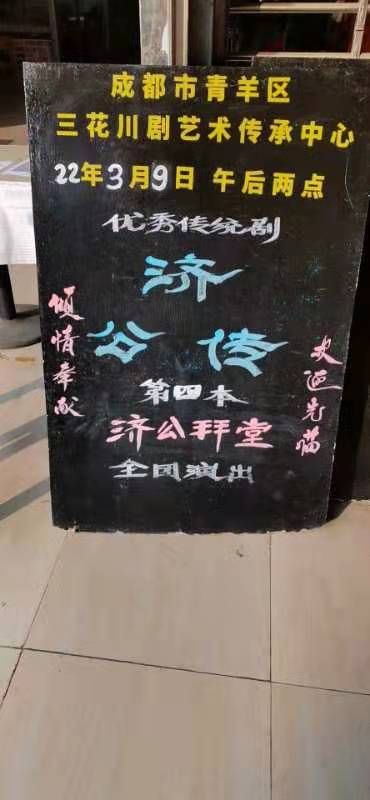 成都市青羊区
三花川剧艺术传承中心
22年3月9日 午后两点
优秀传统剧
济
公 传
第四本
济公拜堂
全团演出
倾情奉献
欢迎光临